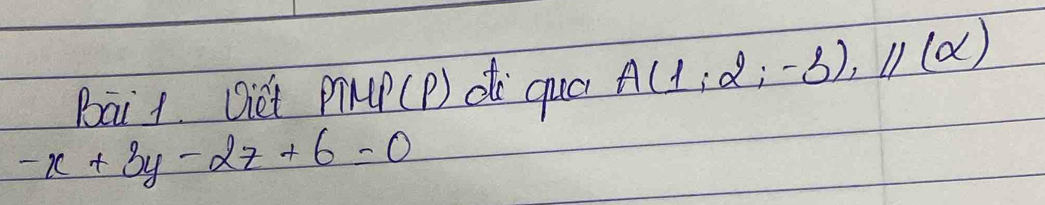 Bài 1. Viết PTMP(P) đi qua A(1;2;-3), // (α)
-x + 3y - 2z + 6 = 0